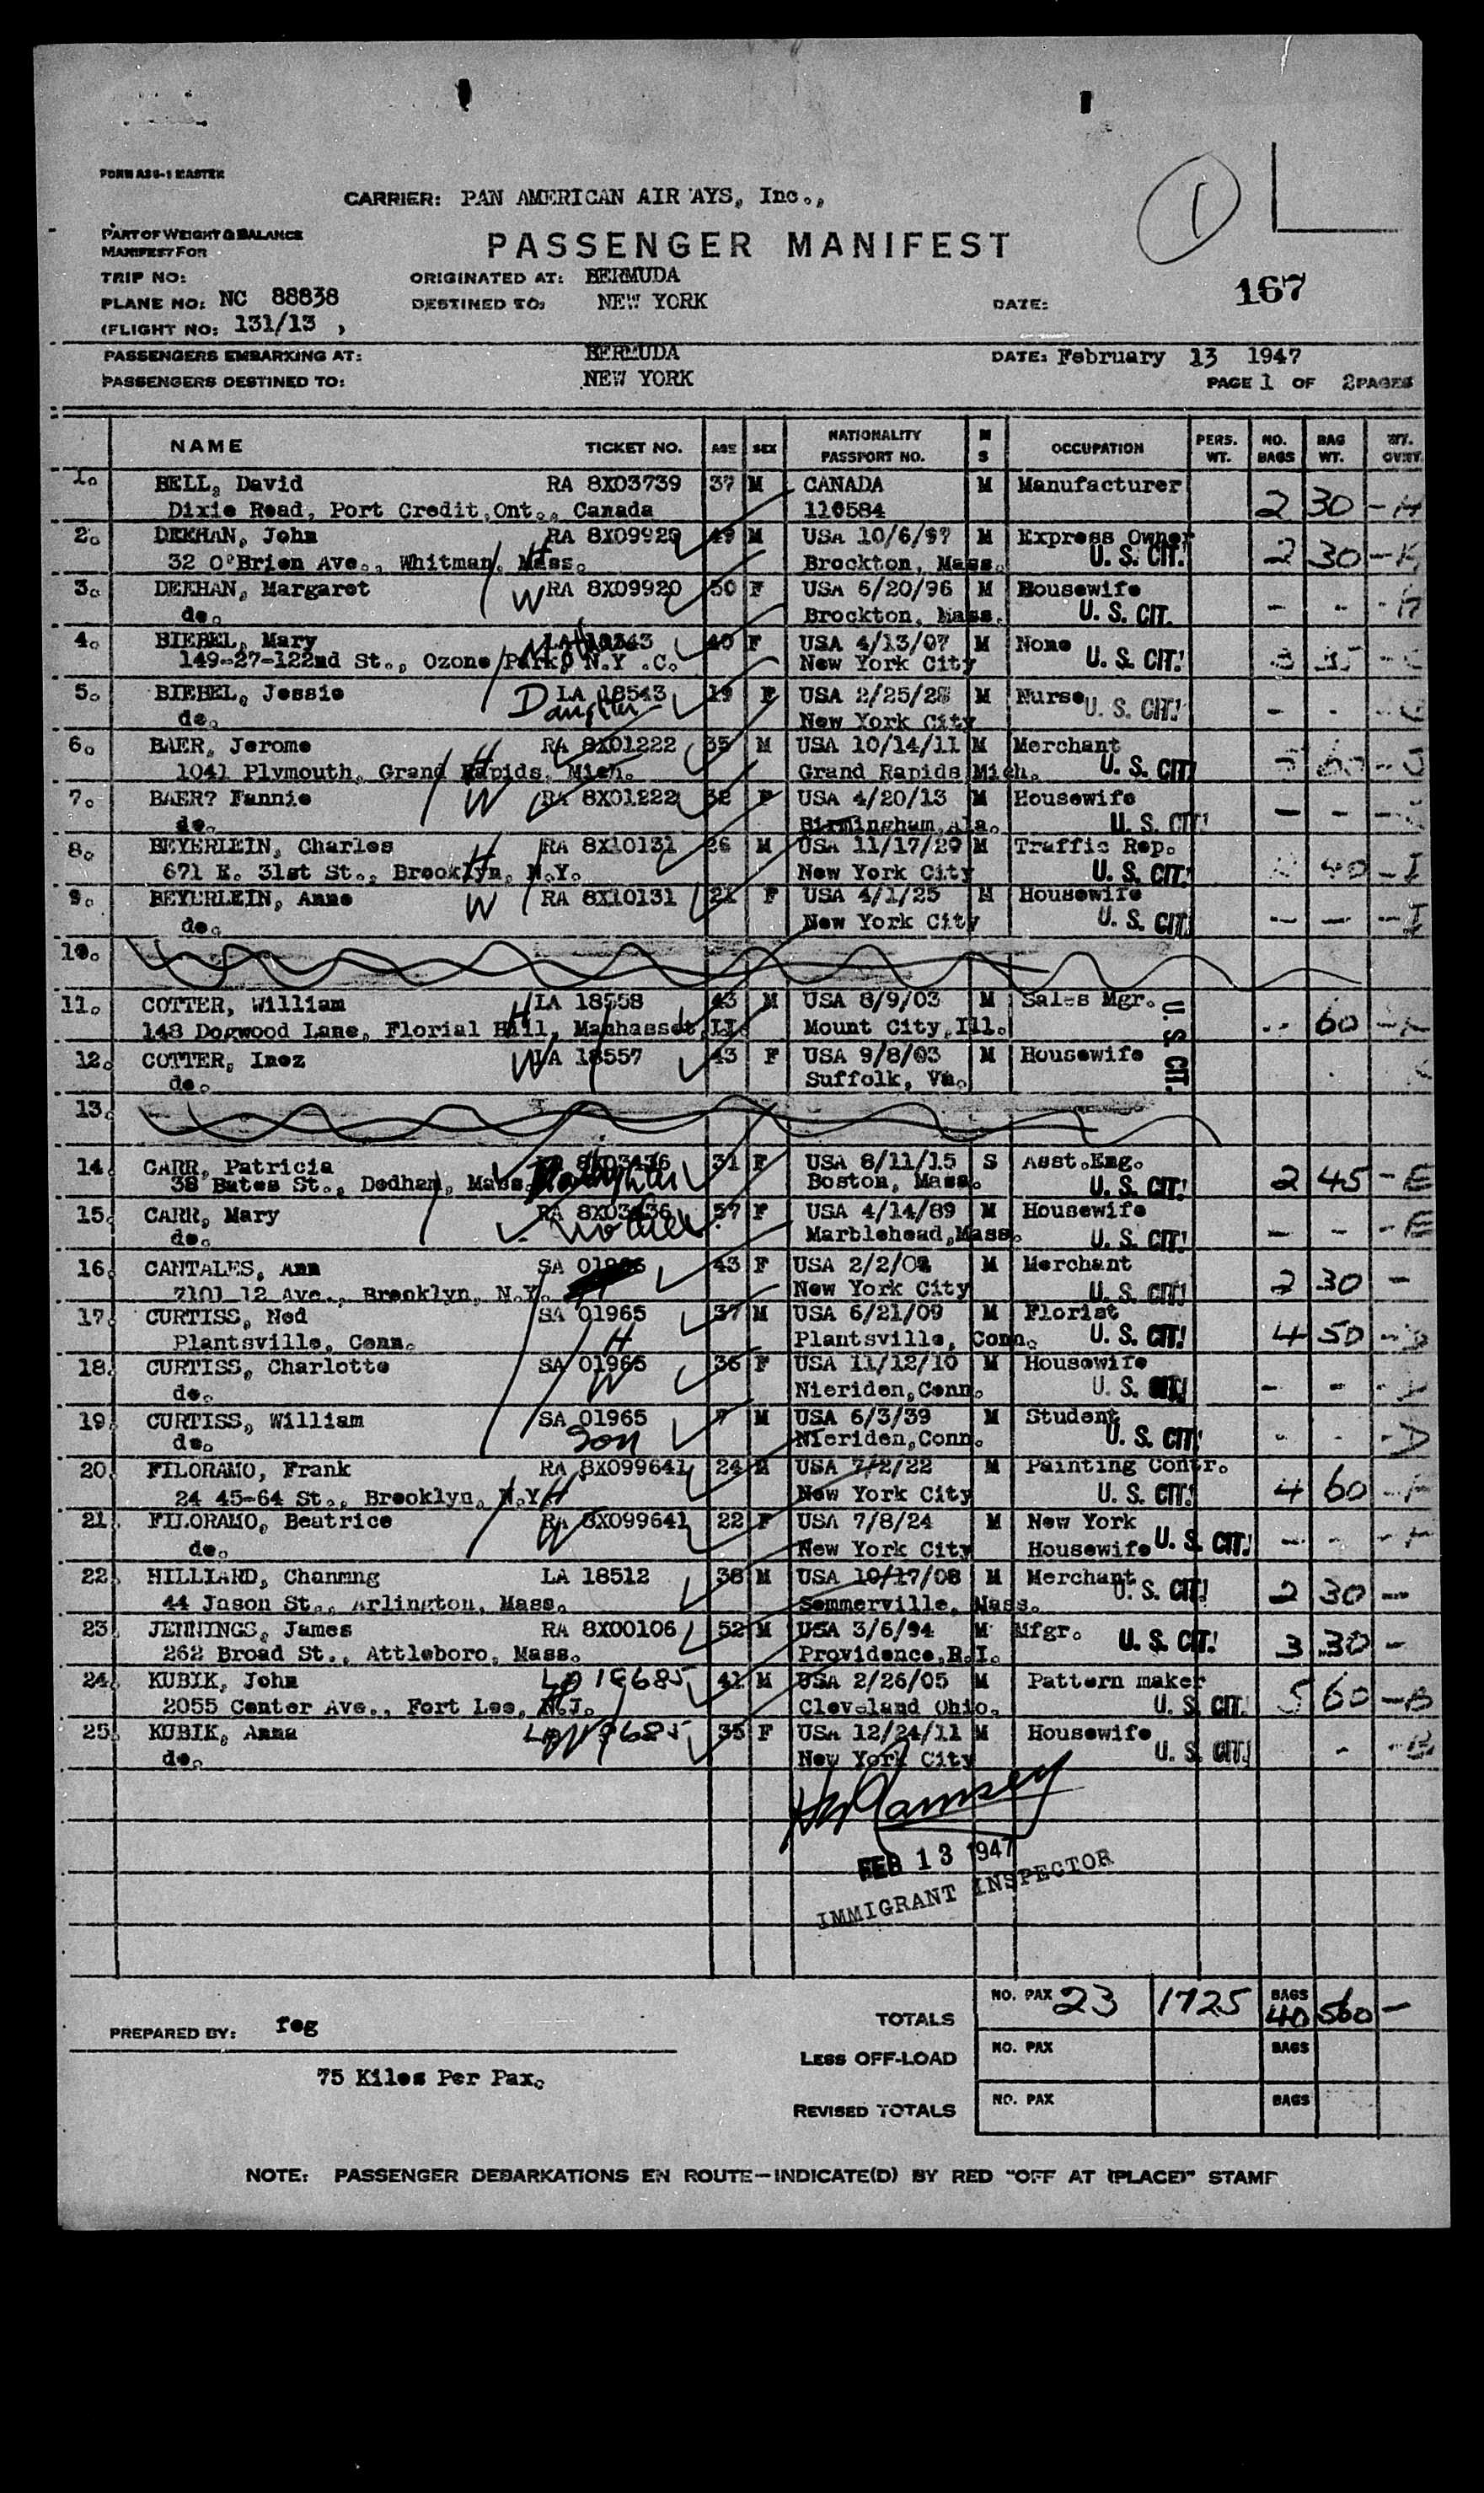 FORM ASG-1 MASTER
CARRIER: PAN AMERICAN AIR AYS, Inc.,
1
PART OF WEIGHT & BALANCE
MANIFEST FOR
PASSENGER MANIFEST
TRIP NO: ORIGINATED AT: BERMUDA
167
PLANE NO: NC 88838 DESTINED TO: NEW YORK DATE:
(FLIGHT NO: 131/13 )
PASSENGERS EMBARKING AT: BERMUDA DATE: February 13 1947
PASSENGERS DESTINED TO: NEW YORK PAGE 1 OF 2 PAGES
NAME TICKET NO. AGE SEX NATIONALITY PASSPORT NO. M S OCCUPATION PERS. WT. NO. BAGS BAG WT.
1. BELL, David RA 8X03739 37 M CANADA M Manufacturer
Dixie Road, Port Credit,Ont., Canada 110584 2 30 - H
2. DEEHAN, John RA 8X09920 49 M USA 10/6/97 M Express Owner
32 O'Brien Ave., Whitman, Mass. H Brockton, Mass. U. S. CIT. 2 30 - K
3. DEEHAN, Margaret W RA 8X09920 50 F USA 6/20/96 M Housewife
do. Brockton, Mass. U. S. CIT. - - -
4. BIEBEL, Mary 40 F USA 4/13/07 M None
149-27-122nd St., Ozone Park, N.Y .C. New York City U. S. CIT.
5. BIEBEL, Jessie LA 18543 19 F USA 2/25/28 M Nurse
do. Daughter New York City U. S. CIT. - -
6. BAER, Jerome RA 8X01222 35 M USA 10/14/11 M Merchant
1041 Plymouth, Grand Rapids, Mich. H Grand Rapids Mich. U. S. CIT.
7. BAER? Fannie W RA 8X01222 32 F USA 4/20/13 M Housewife
do. Birmingham,Ala. U. S. CIT. - -
8. BEYERLEIN, Charles H RA 8X10131 26 M USA 11/17/20 M Traffic Rep.
671 E. 31st St., Brooklyn, N.Y. New York City U. S. CIT. 40 - I
9. BEYERLEIN, Anne W RA 8X10131 21 F USA 4/1/25 M Housewife
do. New York City U. S. CIT. - - - I
10.
11. COTTER, William H LA 18558 43 M USA 8/9/03 M Sales Mgr.
148 Dogwood Lane, Florial Hill, Manhasset,LI. Mount City,Ill. U. S. CIT. 60
12. COTTER, Inez W LA 18557 43 F USA 9/8/03 M Housewife
do. Suffolk, Va.
13.
14. CARR, Patricia 31 F USA 8/11/15 S Asst.Eng.
38 Bates St., Dedham, Mass. Daughter Boston, Mass. U. S. CIT. 2 45 - E
15. CARR, Mary RA 8X03436 57 F USA 4/14/89 M Housewife
do. Mother Marblehead,Mass. U. S. CIT. - - - E
16. CANTALES, Ann SA 43 F USA 2/2/0 M Merchant
7101 12 Ave., Brooklyn, N.Y. New York City U. S. CIT. 2 30 -
17. CURTISS, Ned SA 01965 37 M USA 6/21/09 M Florist
Plantsville, Conn. H Plantsville, Conn. U. S. CIT. 4 50 - D
18. CURTISS, Charlotte SA 01965 36 F USA 11/12/10 M Housewife
do. W Nieriden,Conn. U. S. CIT. - - -
19. CURTISS, William SA 01965 7 M USA 6/3/39 M Student
do. Son Nieriden,Conn. U. S. CIT. - - - D
20. FILORAMO, Frank RA 8X099641 24 M USA 7/2/22 M Painting Contr.
24 45-64 St., Brooklyn, N.Y. H New York City U. S. CIT. 4 60 - F
21. FILORAMO, Beatrice RA 8X099641 22 F USA 7/8/24 M New York
do. W New York City Housewife U. S. CIT. - - - F
22. HILLIARD, Chanmng LA 18512 38 M USA 10/17/08 M Merchant
44 Jason St., Arlington, Mass. Sommerville, Mass. U. S. CIT. 2 30 -
23. JENNINGS, James RA 8X00106 52 M USA 3/6/94 M Mfgr.
262 Broad St., Attleboro, Mass. Providence,R.I. U. S. CIT. 3 30 -
24. KUBIK, John LA 18685 41 M USA 2/26/05 M Pattern maker
2055 Center Ave., Fort Lee, N.J. H Cleveland Ohio. U. S. CIT. 5 60 - B
25. KUBIK, Anna 35 F USA 12/24/11 M Housewife
do. W New York City U. S. CIT. - - B
Ramsey
FEB 13 1947
IMMIGRANT INSPECTOR
TOTALS NO. PAX 23 1725 BAGS 40 560 -
PREPARED BY: feg
LESS OFF-LOAD NO. PAX BAGS
75 Kilos Per Pax.
REVISED TOTALS NO. PAX BAGS
NOTE: PASSENGER DEBARKATIONS EN ROUTE—INDICATE(D) BY RED "OFF AT (PLACE)" STAMP